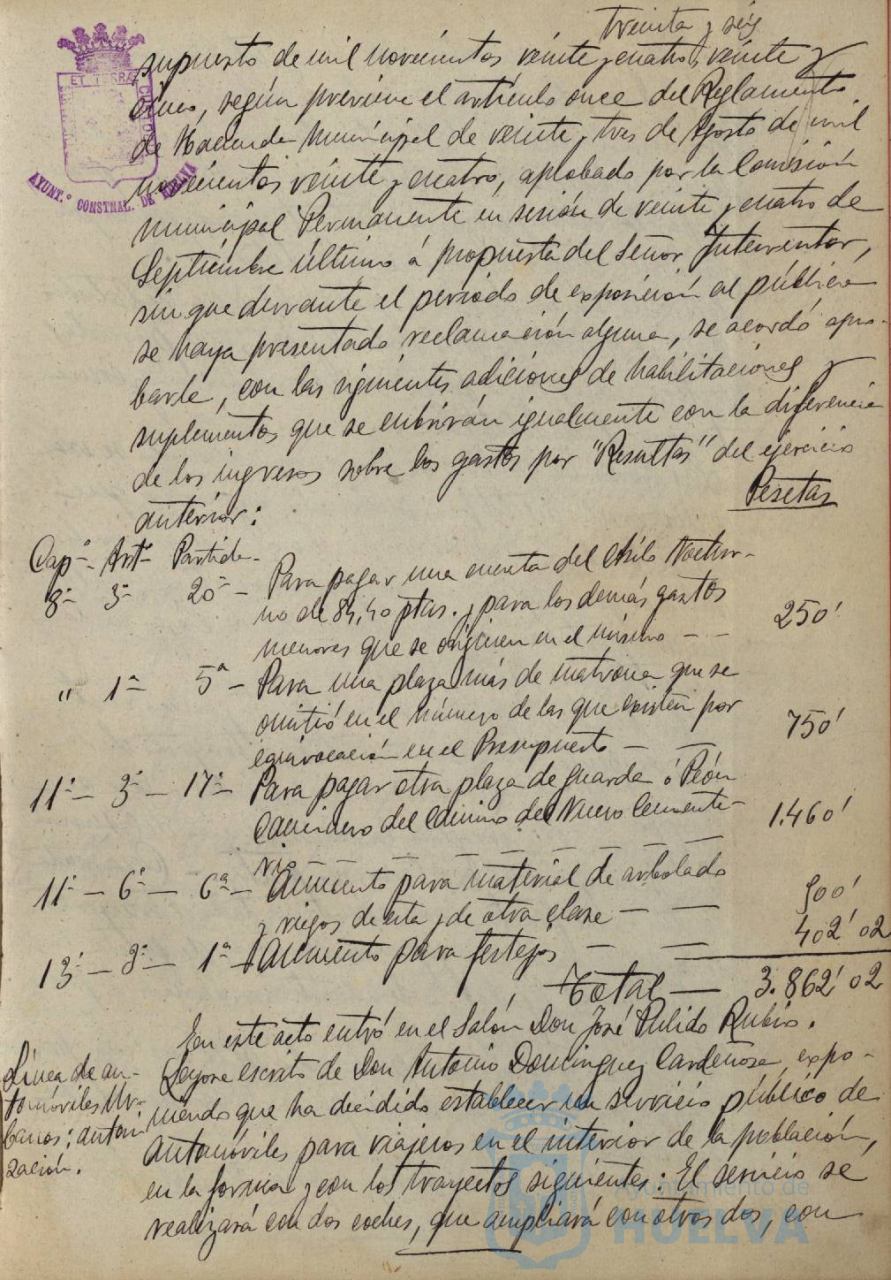 treinta y seis
ET TERRÆ CUSTODIA
AYUNT.º CONSTNAL. DE HUELVA
supuesto de mil novecientos veinte y cuatro, veinte y
cinco, según previene el artículo once del Reglamento
de Hacienda Municipal de veinte y tres de Agosto de mil
novecientos veinte y cuatro, aprobado por la Comisión
municipal Permanente en sesión de veinte y cuatro de
Septiembre último á propuesta del Señor Interventor,
sin que durante el periodo de exposición al público
se haya presentado reclamación alguna, se acordó apro-
barle, con las siguientes adiciones de habilitaciones y
suplementos que se cubrirán igualmente con la diferencia
de los ingresos sobre los gastos por "Resultas" del ejercicio
anterior:
Pesetas
Capº - Artº - Partida -
8º - 3º 20º - Para pagar una cuenta del Asilo Noctur-
no de 84,40 ptas. y para los demás gastos
menores que se originen en el mismo - - 250'
" 1º 5ª - Para una plaza más de matrona que se
omitió en el número de las que existen por
equivocación en el Presupuesto - - 750'
11º - 3º - 17º - Para pagar otra plaza de guarda ó Peón
Caminero del Camino del Nuevo Cemente-
rio - - - - - - 1.460'
11º - 6º - 6ª - Aumento para material de arbolado
y riegos de esta y de otra clase - - 500'... 
13º - 3º - 1ª - Aumento para festejos - - 402'02
Total - 3.862'02
En este acto entró en el Salón Don José Pulido Rubio.
Línea de au-
tomóviles Ur-
banos; autori
zación.
Leyose escrito de Don Antonio Dominguez Cardeñosa, expo-
niendo que ha decidido establecer un servicio público de
automóviles para viajeros en el interior de la población,
en la forma y con los trayectos siguientes: El servicio se
realizará con dos coches, que ampliará con otros dos, con
Ayuntamiento de
HUELVA